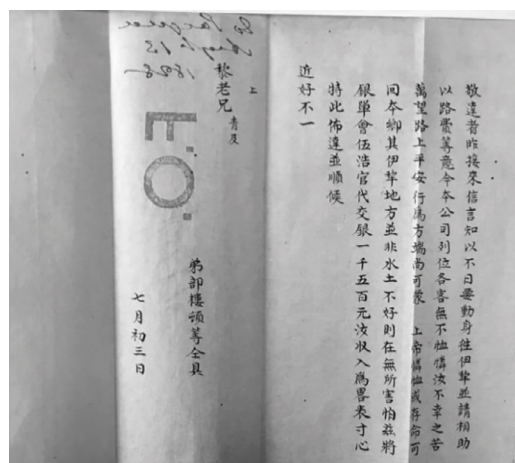 敬達者昨接來信言知以不日要動身往伊犂並請相助
以路費等意令本公司列位各客無不恤憐汝不幸之苦
萬望路上平安行爲方端尚可蒙 上帝憐恤或存命可
回本鄉其伊犂地方並非水土不好則在無所害怕茲將
銀單會伍浩官代交銀一千五百元汝收入爲畧表寸心
特此佈達並順候
近好不一
上
黎老兄 青及
弟部樓頓等仝具
七月初三日
E.O.
1828